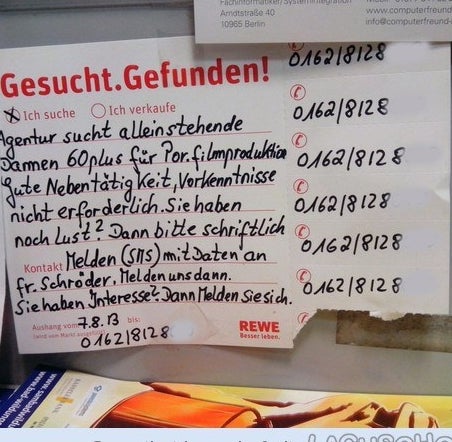 Fachinformatiker/Systemintegration
Arndtstraße 40
10965 Berlin
www.computerfreund-
info@computerfreund-
Gesucht.Gefunden!
Ich suche Ich verkaufe
Agentur sucht alleinstehende
Darmen 60plus für Por.filmproduktion
gute Nebentätigkeit, Vorkenntnisse
nicht erforderlich. Sie haben
noch Lust? Dann bitte schriftlich
Kontakt Melden (SMS) mit Daten an
fr. Schröder. Melden uns dann.
Sie haben Interesse? Dann Melden Sie sich.
Aushang vom 7.8.13 bis:
(wird vom Markt ausgefüllt)
0162/8128
REWE
Besser leben.
0162/8128
0162/8128
0162/8128
0162/8128
0162/8128
0162/8128